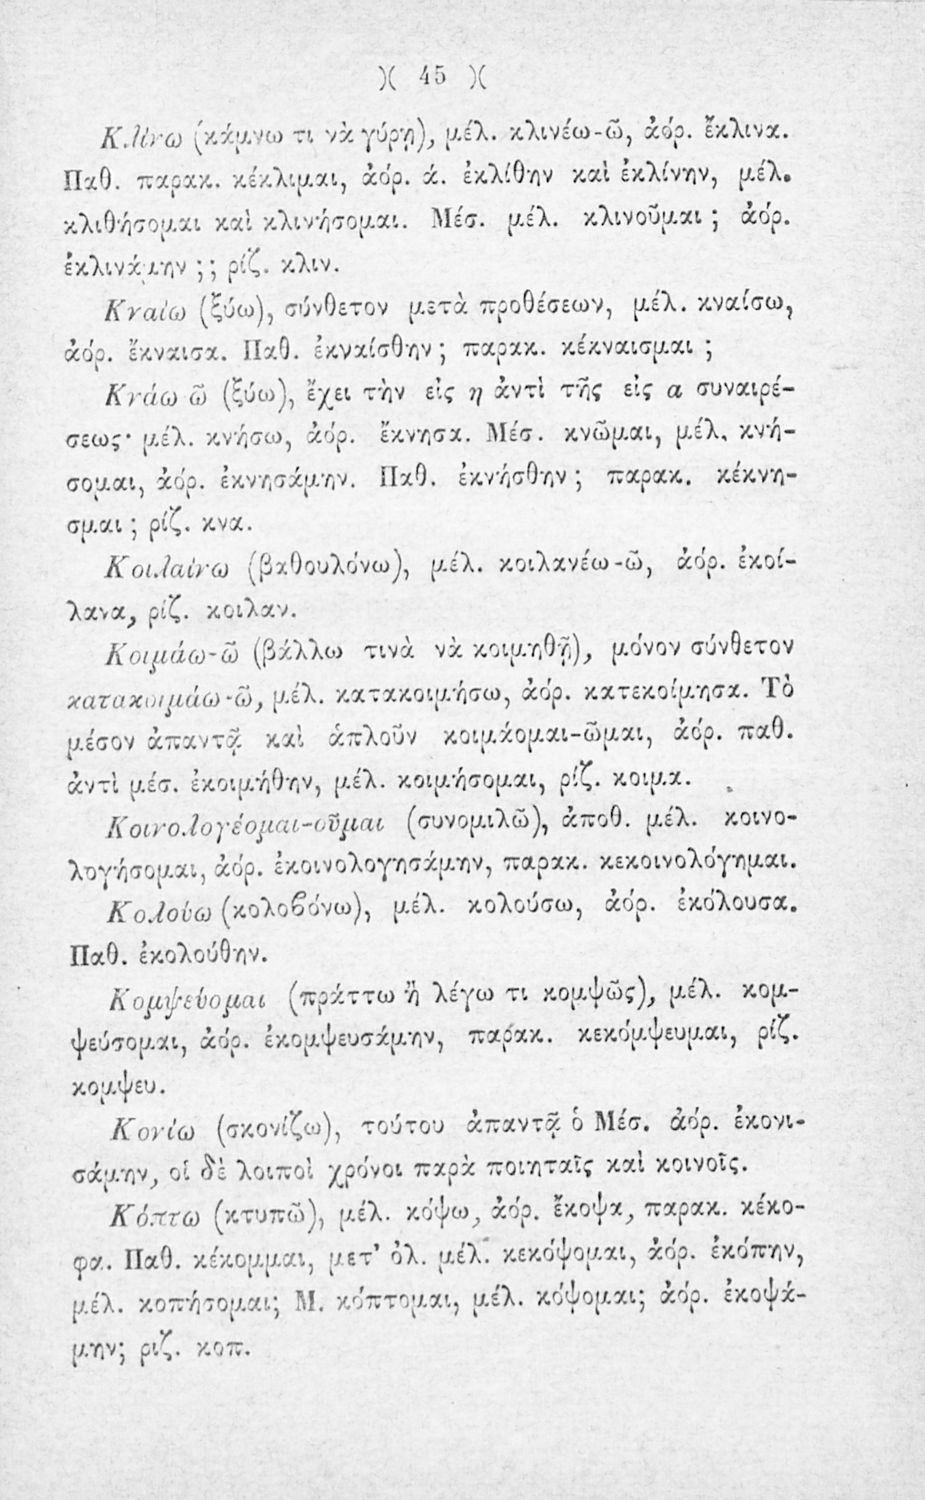 )( 45 )(
Κλίνω (κάμνω τι νὰ γύρῃ), μέλ. κλινέω-ῶ, ἀόρ. ἔκλινα.
Παθ. παρακ. κέκλιμαι, ἀόρ. ά. ἐκλίθην καὶ ἐκλίνην, μέλ.
κλιθήσομαι καὶ κλινήσομαι. Μέσ. μέλ. κλινοῦμαι ; ἀόρ.
ἐκλινάμην ; ; ρίζ. κλιν.
Κναίω (ξύω), σύνθετον μετὰ προθέσεων, μέλ. κναίσω,
ἀόρ. ἔκναισα. Παθ. ἐκναίσθην ; παρακ. κέκναισμαι ;
Κνάω ῶ (ξύω), ἔχει τὴν εἰς η ἀντὶ τῆς εἰς α συναιρέ-
σεως· μέλ. κνήσω, ἀόρ. ἔκνησα. Μέσ. κνῶμαι, μέλ. κνή-
σομαι, ἀόρ. ἐκνησάμην. Παθ. ἐκνήσθην ; παρακ. κέκνη-
σμαι ; ρίζ. κνα.
Κοιλαίνω (βαθουλόνω), μέλ. κοιλανέω-ῶ, ἀόρ. ἐκοί-
λανα, ρίζ. κοιλαν.
Κοιμάω-ῶ (βάλλω τινὰ νὰ κοιμηθῇ), μόνον σύνθετον
κατακοιμάω-ῶ, μέλ. κατακοιμήσω, ἀόρ. κατεκοίμησα. Τὸ
μέσον ἀπαντᾷ καὶ ἁπλοῦν κοιμάομαι-ῶμαι, ἀόρ. παθ.
ἀντὶ μέσ. ἐκοιμήθην, μέλ. κοιμήσομαι, ρίζ. κοιμα.
Κοινολογέομαι-οῦμαι (συνομιλῶ), ἀποθ. μέλ. κοινο-
λογήσομαι, ἀόρ. ἐκοινολογησάμην, παρακ. κεκοινολόγημαι.
Κολούω (κολοβόνω), μέλ. κολούσω, ἀόρ. ἐκόλουσα.
Παθ. ἐκολούθην.
Κομψεύομαι (πράττω ἢ λέγω τι κομψῶς), μέλ. κομ-
ψεύσομαι, ἀόρ. ἐκομψευσάμην, παρακ. κεκόμψευμαι, ρίζ.
κομψευ.
Κονίω (σκονίζω), τούτου ἀπαντᾷ ὁ Μέσ. ἀόρ. ἐκονι-
σάμην, οἱ δὲ λοιποὶ χρόνοι παρὰ ποιηταῖς καὶ κοινοῖς.
Κόπτω (κτυπῶ), μέλ. κόψω, ἀόρ. ἔκοψα, παρακ. κέκο-
φα. Παθ. κέκομμαι, μετ' ὀλ. μέλ. κεκόψομαι, ἀόρ. ἐκόπην,
μέλ. κοπήσομαι; Μ. κόπτομαι, μέλ. κόψομαι; ἀόρ. ἐκοψά-
μην; ριζ. κοπ.